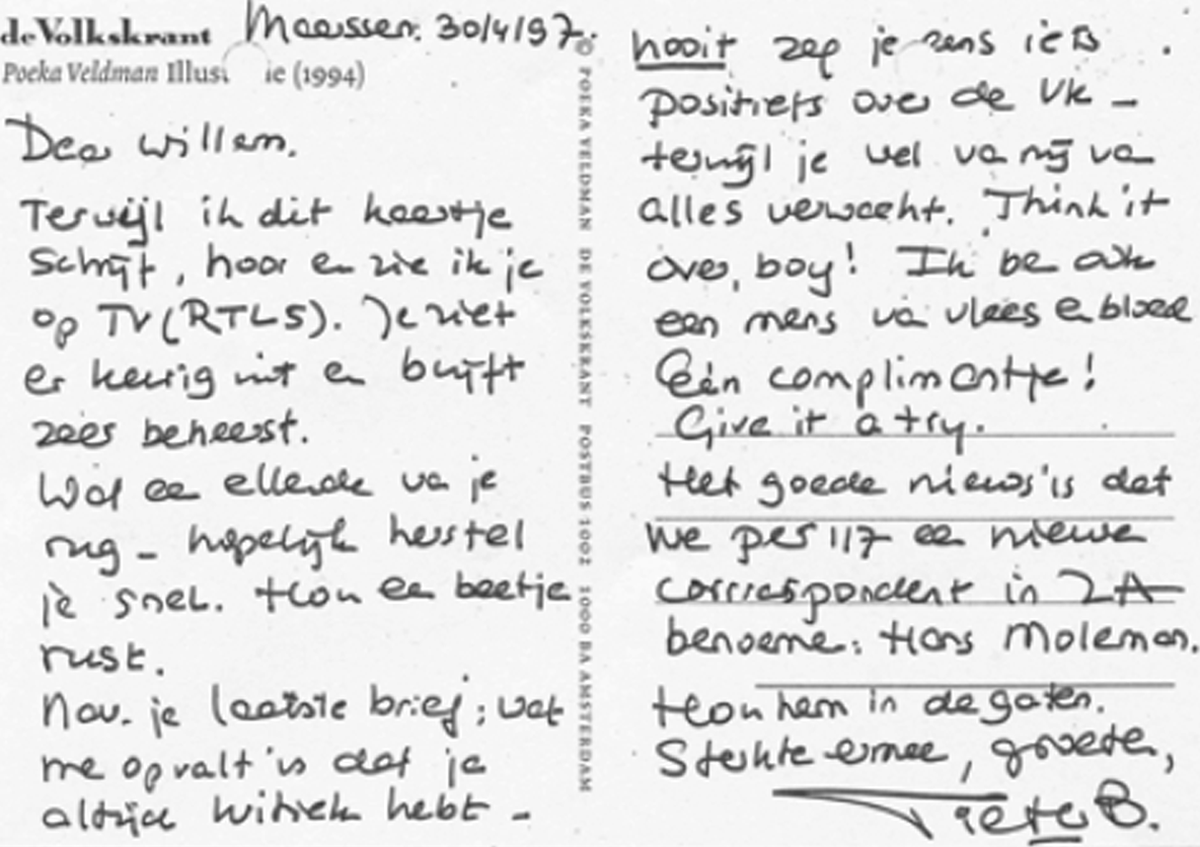 de Volkskrant
Maarssen. 30/4/97.
Poeka Veldman Illus ie (1994)
Dear Willem.
Terwijl ik dit kaartje
schrijf, hoor en zie ik je
op TV (RTL5). Je ziet
er keurig uit en blijft
zeer beheerst.
Wat een ellende van je
rug - hopelijk herstel
je snel. Hou een beetje
rust.
N.a.v. je laatste brief: wat
me opvalt is dat je
altijd kritiek hebt -
© POEKA VELDMAN DE VOLKSKRANT POSTBUS 1002 1000 BA AMSTERDAM
nooit zeg je eens iets
positiefs over de Vk -
terwijl je wel van mij van
alles verwacht. Think it
over, boy! Ik ben ook
een mens van vlees en bloed
Eén complimentje!
Give it a try.
Het goede nieuws is dat
we per 1/7 een nieuwe
correspondent in ZA
benoemen: Hans Moleman.
Hou hem in de gaten.
Sterkte ermee, groeten,
Pieter B.